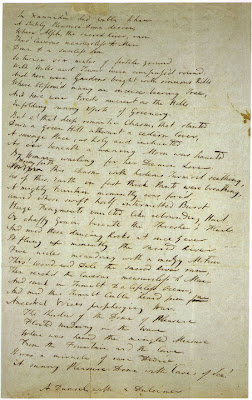 In Xannadù did Cubla Khan
A stately Pleasure-Dome decree;
Where Alph, the sacred River, ran
Thro' Caverns measureless to Man
Down to a sunless Sea.
So twice six miles of fertile ground
With Walls and Towers were compass'd round:
And here were Gardens bright with sinuous Rills
Where blossom'd many an incense-bearing Tree,
And here were Forests ancient as the Hills
Enfolding sunny Spots of Greenery.
But o! that deep romantic Chasm, that slanted
Down a green Hill athwart a cedarn Cover,
A savage Place, as holy and inchanted
As e'er beneath a waning Moon was haunted
By Woman wailing for her Daemon Lover:
From forth this Chasm with hideous Turmoil seething,
As if this Earth in fast thick Pants were breathing,
A mighty Fountain momently was forc'd,
Amid whose swift half-intermitted Burst
Huge Fragments vaulted like rebounding Hail,
Or chaffy Grain beneath the Thresher's Flail:
And mid these dancing Rocks at once & ever
It flung up momently the sacred River.
Five miles meandering with a mazy Motion
Thro' Wood and Dale the sacred River ran,
Then reach'd the Caverns measureless to Man
And sank in Tumult to a lifeless Ocean;
And mid this Tumult Cubla heard from
Ancestral Voices prophesying War.
The Shadow of the Dome of Pleasure
Floated midway on the Wave
Where was heard the mingled Measure
From the Fountain and the Cave.
It was a miracle of rare Device,
A sunny Pleasure-Dome with Caves of Ice!
A Damsel with a Dulcimer